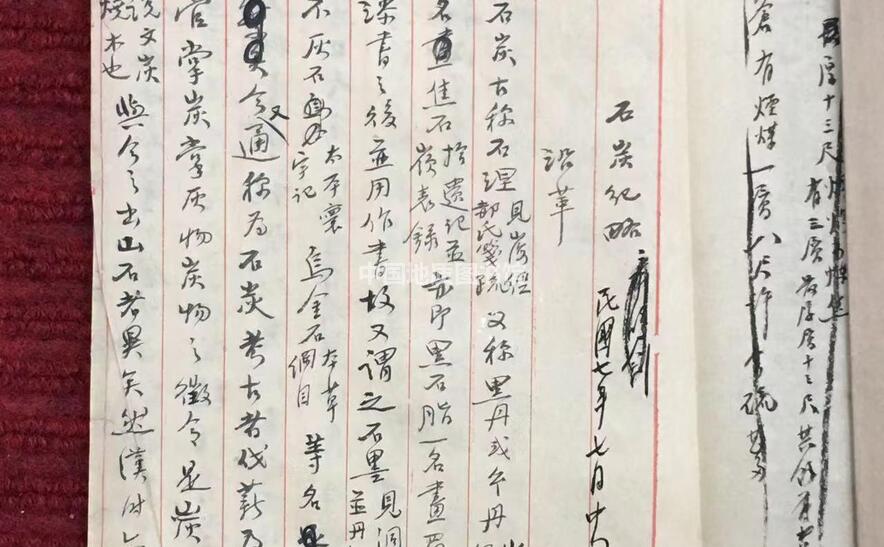 厚十三尺
有三层最厚层十三尺共
倉有煙煤一層八尺許
石炭紀略
民國七年七月
沿革
石炭古称石涅見山海經郝氏箋疏又称黑丹或
名畫焦石拾遺記並嶺表録即黑石脂一名畫眉
漆書之後並用作書故又謂之石墨見
不灰石太平寰宇記烏金石本草綱目等名
今又通称為石炭考古者伐薪為
官掌炭掌灰物炭物之徵令是炭
説文炭燒木也與今之出山石者異矣然漢时
中国地质图书馆